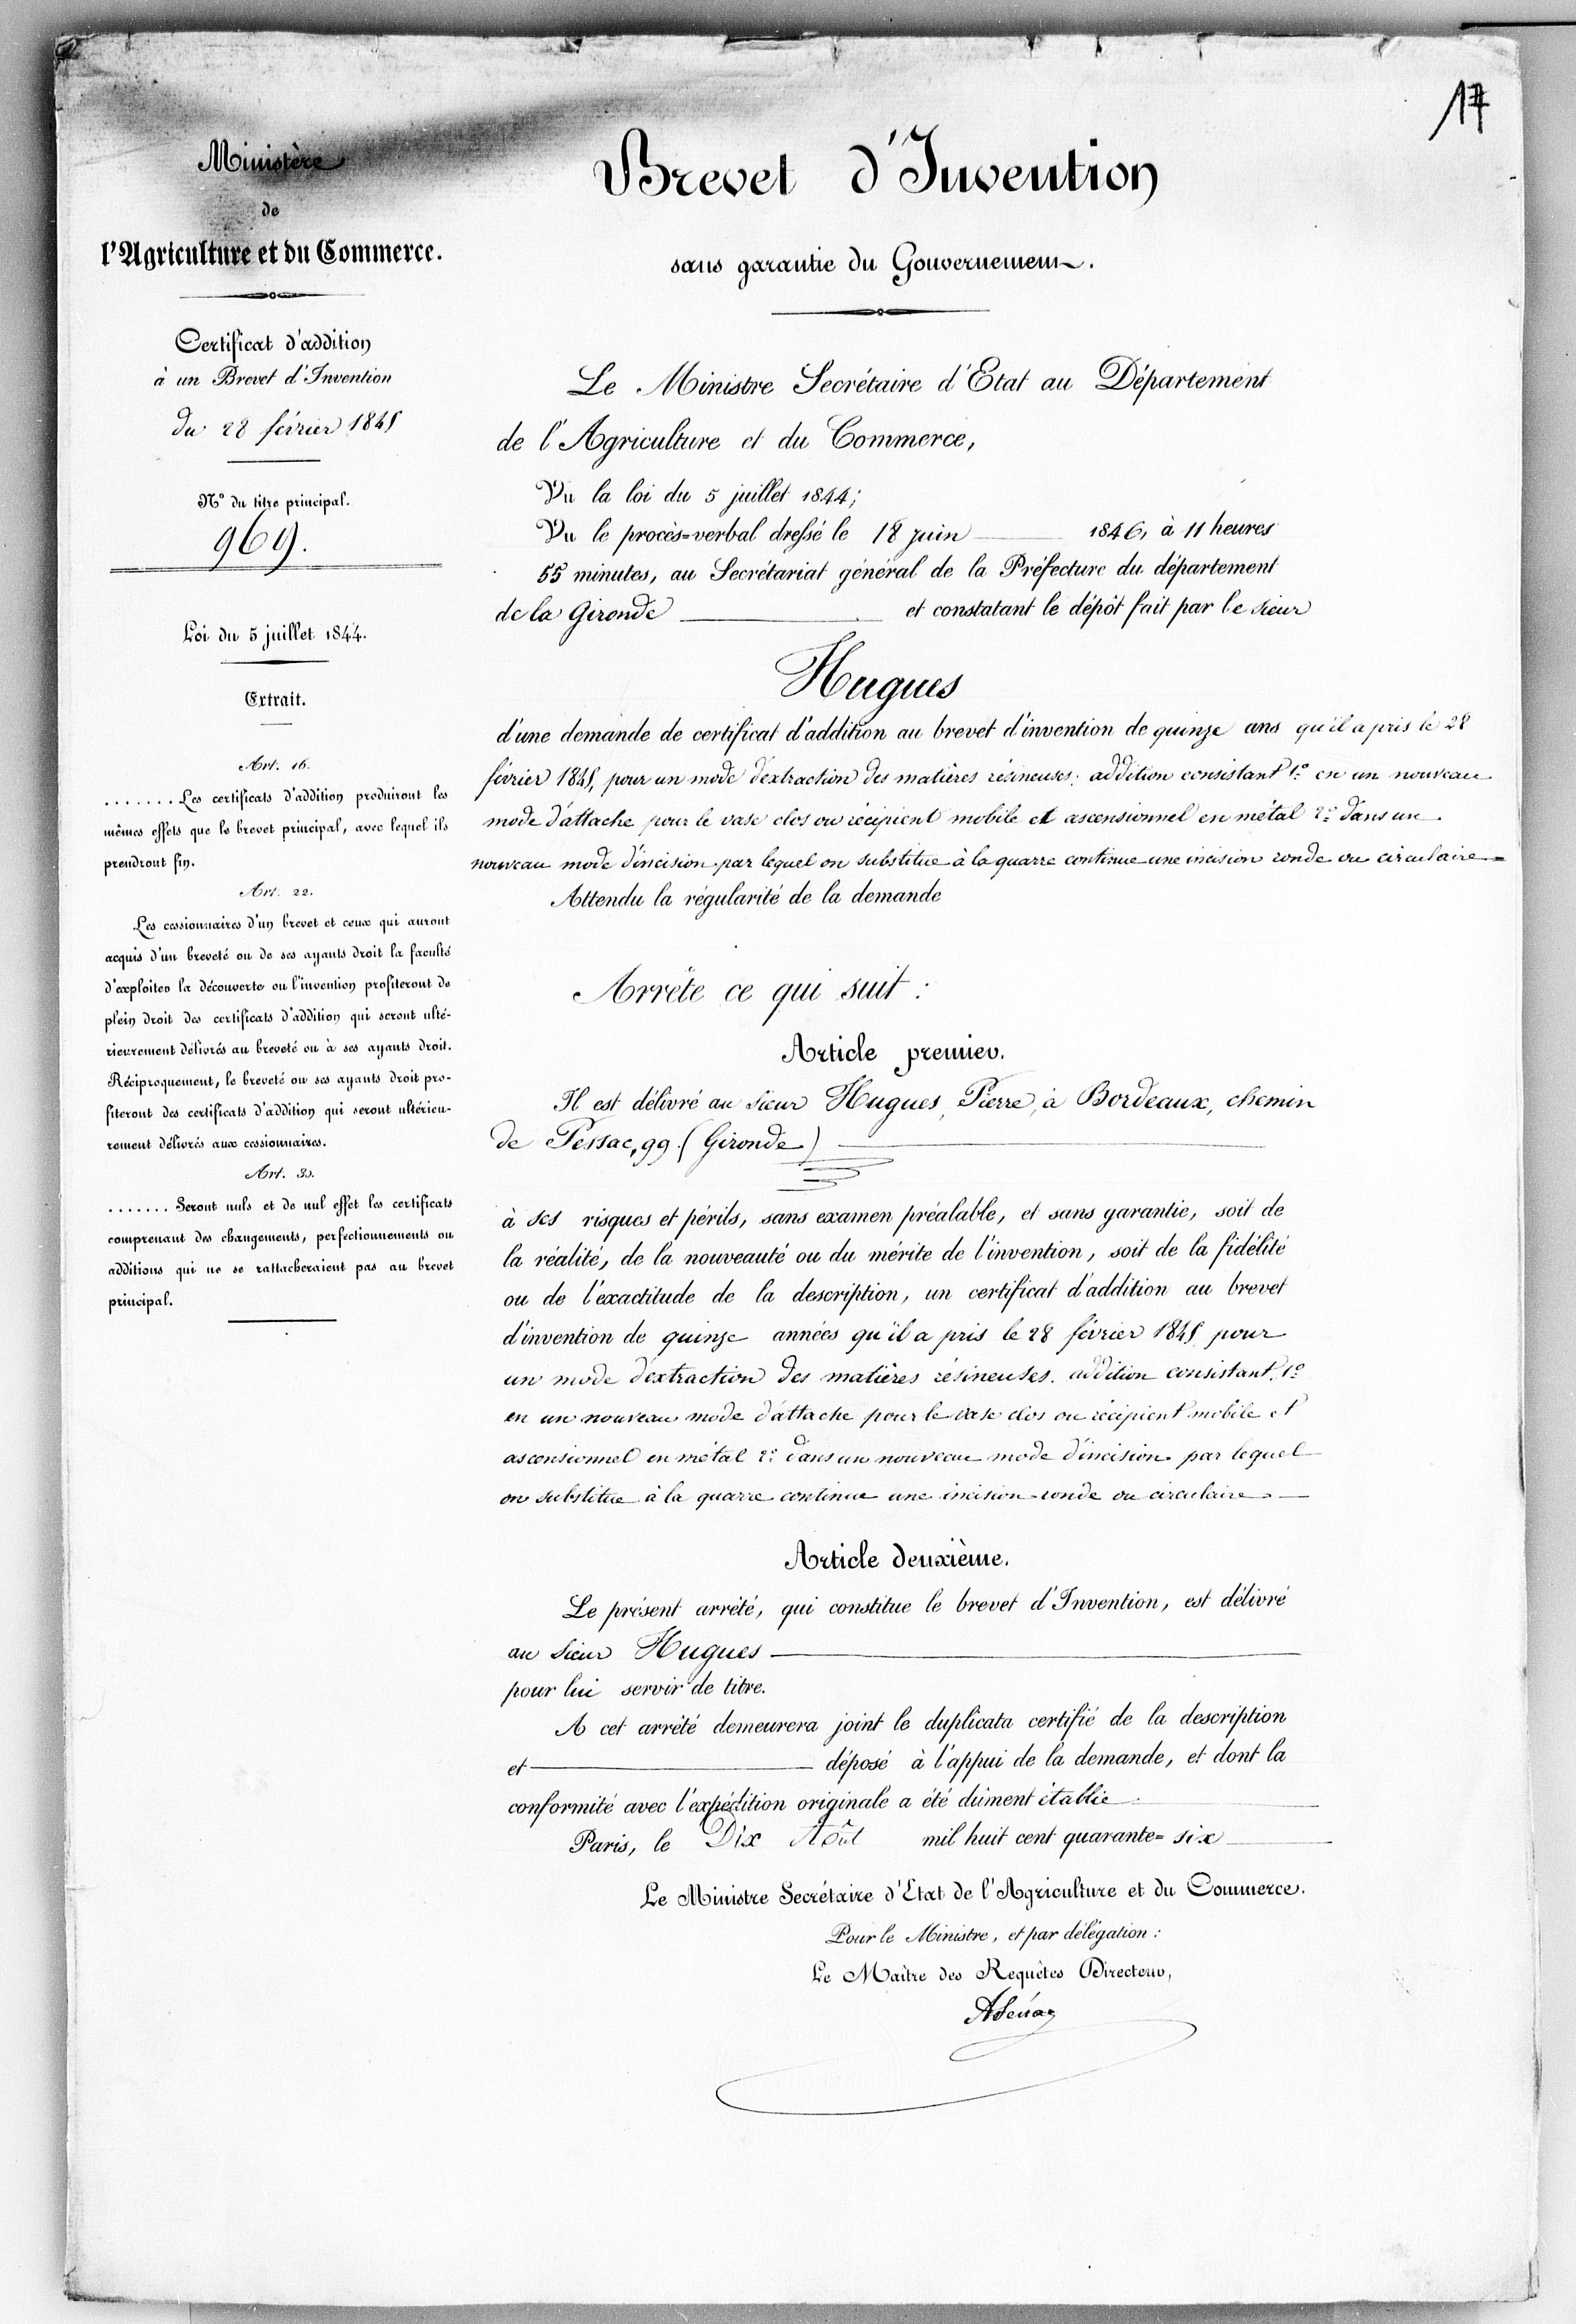 17
Ministère
de
l'Agriculture et du Commerce.
Certificat d'addition
à un Brevet d'Invention
du 28 février 1845
N° du titre principal.
969.
Loi du 5 juillet 1844.
Extrait.
Art. 16.
....... Les certificats d'addition produiront les
mêmes effets que le brevet principal, avec lequel ils
prendront fin.
Art. 22.
Les cessionnaires d'un brevet et ceux qui auront
acquis d'un breveté ou de ses ayants droit la faculté
d'exploiter la découverte ou l'invention profiteront de
plein droit des certificats d'addition qui seront ulté-
rieurement délivrés au breveté ou à ses ayants droit.
Réciproquement, le breveté ou ses ayants droit pro-
fiteront des certificats d'addition qui seront ultérieu-
rement délivrés aux cessionnaires.
Art. 30.
....... Seront nuls et de nul effet les certificats
comprenant des changements, perfectionnements ou
additions qui ne se rattacheraient pas au brevet
principal.
Brevet d'Invention
sans garantie du Gouvernement.
Le Ministre Secrétaire d'Etat au Département
de l'Agriculture et du Commerce,
Vu la loi du 5 juillet 1844;
Vu le procès=verbal dressé le 18 juin 1846, à 11 heures
55 minutes, au Secrétariat général de la Préfecture du département
de la Gironde et constatant le dépôt fait par le sieur
Hugues
d'une demande de certificat d'addition au brevet d'invention de quinze ans qu'il a pris le 28
février 1845, pour un mode d'extraction des matières résineuses: addition consistant 1° en un nouveau
mode d'attache pour le vase clos ou récipient mobile et ascensionnel en métal 2° dans un
nouveau mode d'incision par lequel on substitue à la quarre continue une incision ronde ou circulaire=
Attendu la régularité de la demande
Arrête ce qui suit :
Article premier.
Il est délivré au sieur Hugues, Pierre, à Bordeaux, chemin
de Pessac, 99 (Gironde)
à ses risques et périls, sans examen préalable, et sans garantie, soit de
la réalité, de la nouveauté ou du mérite de l'invention, soit de la fidélité
ou de l'exactitude de la description, un certificat d'addition au brevet
d'invention de quinze années qu'il a pris le 28 février 1845 pour
un mode d'extraction des matières résineuses. addition consistant 1°
en un nouveau mode d'attache pour le vase clos ou récipient mobile et
ascensionnel en métal 2° dans un nouveau mode d'incision par lequel
on substitue à la quarre continue une incision ronde ou circulaire
Article deuxième.
Le présent arrêté, qui constitue le brevet d'Invention, est délivré
au sieur Hugues
pour lui servir de titre.
A cet arrêté demeurera joint le duplicata certifié de la description
et déposé à l'appui de la demande, et dont la
conformité avec l'expédition originale a été dûment établie.
Paris, le Dix Août mil huit cent quarante=six
Le Ministre Secrétaire d'Etat de l'Agriculture et du Commerce.
Pour le Ministre, et par délégation :
Le Maître des Requêtes Directeur,